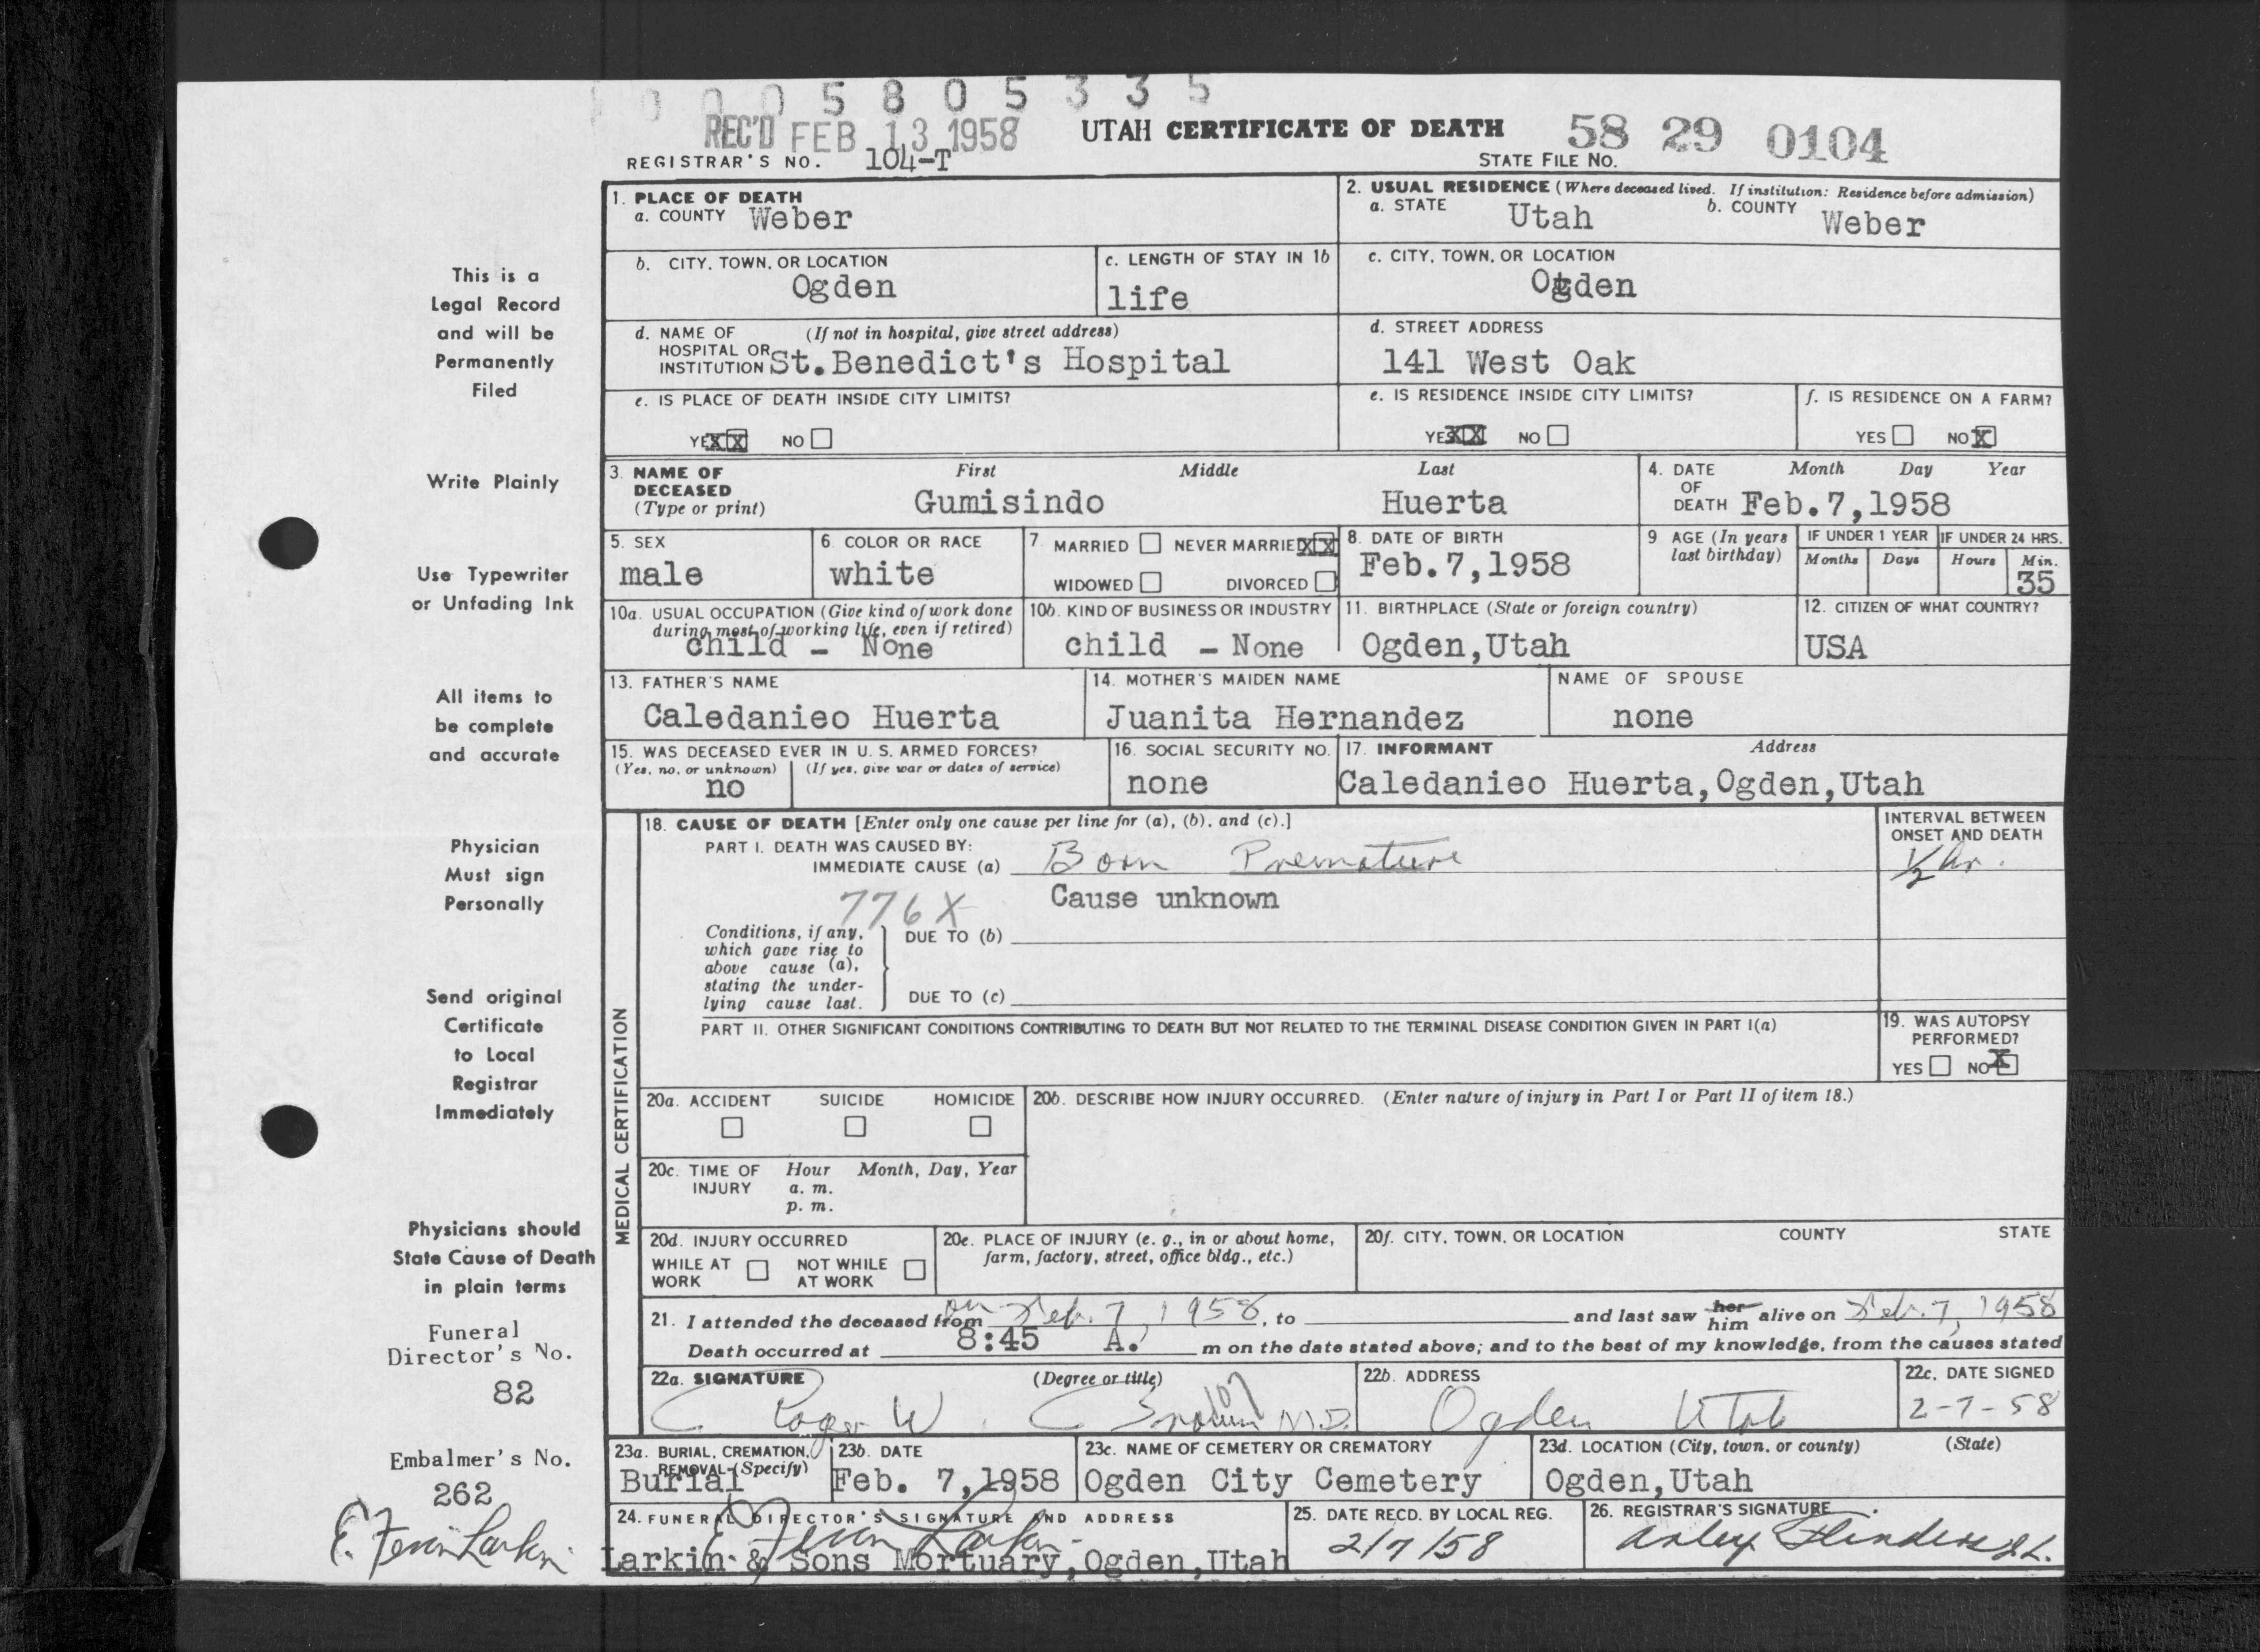 0 0 0 5 8 0 5 3 3 5
REC'D FEB 13 1958 UTAH CERTIFICATE OF DEATH 58 29 0104
REGISTRAR'S NO. 104-T STATE FILE NO.
This is a
Legal Record
and will be
Permanently
Filed
Write Plainly
Use Typewriter
or Unfading Ink
All items to
be complete
and accurate
Physician
Must sign
Personally
Send original
Certificate
to Local
Registrar
Immediately
Physicians should
State Cause of Death
in plain terms
Funeral
Director's No.
82
Embalmer's No.
262
E. Feron Larkin
1. PLACE OF DEATH
a. COUNTY Weber
2. USUAL RESIDENCE (Where deceased lived. If institution: Residence before admission)
a. STATE Utah b. COUNTY Weber
b. CITY, TOWN, OR LOCATION
Ogden
c. LENGTH OF STAY IN 1b
life
c. CITY, TOWN, OR LOCATION
Ogden
d. NAME OF (If not in hospital, give street address)
HOSPITAL OR
INSTITUTION St.Benedict's Hospital
d. STREET ADDRESS
141 West Oak
e. IS PLACE OF DEATH INSIDE CITY LIMITS?
YES XX NO
e. IS RESIDENCE INSIDE CITY LIMITS?
YES XX NO
f. IS RESIDENCE ON A FARM?
YES NO X
3. NAME OF First Middle Last
DECEASED
(Type or print) Gumisindo Huerta
4. DATE Month Day Year
OF
DEATH Feb.7,1958
5. SEX
male
6. COLOR OR RACE
white
7. MARRIED NEVER MARRIED XX
WIDOWED DIVORCED
8. DATE OF BIRTH
Feb.7,1958
9 AGE (In years
last birthday)
IF UNDER 1 YEAR IF UNDER 24 HRS.
Months Days Hours Min.
35
10a. USUAL OCCUPATION (Give kind of work done
during most of working life, even if retired)
child - None
10b. KIND OF BUSINESS OR INDUSTRY
child - None
11. BIRTHPLACE (State or foreign country)
Ogden,Utah
12. CITIZEN OF WHAT COUNTRY?
USA
13. FATHER'S NAME
Caledanieo Huerta
14. MOTHER'S MAIDEN NAME
Juanita Hernandez
NAME OF SPOUSE
none
15. WAS DECEASED EVER IN U. S. ARMED FORCES?
(Yes, no, or unknown) (If yes, give war or dates of service)
no
16. SOCIAL SECURITY NO.
none
17. INFORMANT Address
Caledanieo Huerta,Ogden,Utah
MEDICAL CERTIFICATION
18. CAUSE OF DEATH [Enter only one cause per line for (a), (b), and (c).]
PART I. DEATH WAS CAUSED BY:
IMMEDIATE CAUSE (a) Born Premature
INTERVAL BETWEEN
ONSET AND DEATH
1/2 hr.
776X Cause unknown
Conditions, if any,
which gave rise to
above cause (a),
stating the under-
lying cause last.
DUE TO (b)
DUE TO (c)
PART II. OTHER SIGNIFICANT CONDITIONS CONTRIBUTING TO DEATH BUT NOT RELATED TO THE TERMINAL DISEASE CONDITION GIVEN IN PART I(a)
19. WAS AUTOPSY
PERFORMED?
YES NO X
20a. ACCIDENT SUICIDE HOMICIDE
20b. DESCRIBE HOW INJURY OCCURRED. (Enter nature of injury in Part I or Part II of item 18.)
20c. TIME OF Hour Month, Day, Year
INJURY a. m.
p. m.
20d. INJURY OCCURRED
WHILE AT NOT WHILE
WORK AT WORK
20e. PLACE OF INJURY (e. g., in or about home,
farm, factory, street, office bldg., etc.)
20f. CITY, TOWN, OR LOCATION COUNTY STATE
21. I attended the deceased from on Feb. 7, 1958, to and last saw her him alive on Feb. 7, 1958
Death occurred at 8:45 A. m on the date stated above; and to the best of my knowledge, from the causes stated
22a. SIGNATURE (Degree or title)
Roger W. M.D.
22b. ADDRESS
Ogden Utah
22c. DATE SIGNED
2-7-58
23a. BURIAL, CREMATION,
REMOVAL (Specify)
Burial
23b. DATE
Feb. 7,1958
23c. NAME OF CEMETERY OR CREMATORY
Ogden City Cemetery
23d. LOCATION (City, town, or county) (State)
Ogden,Utah
24. FUNERAL DIRECTOR'S SIGNATURE AND ADDRESS
E. Feron Larkin
Larkin & Sons Mortuary,Ogden,Utah
25. DATE RECD. BY LOCAL REG.
2/7/58
26. REGISTRAR'S SIGNATURE